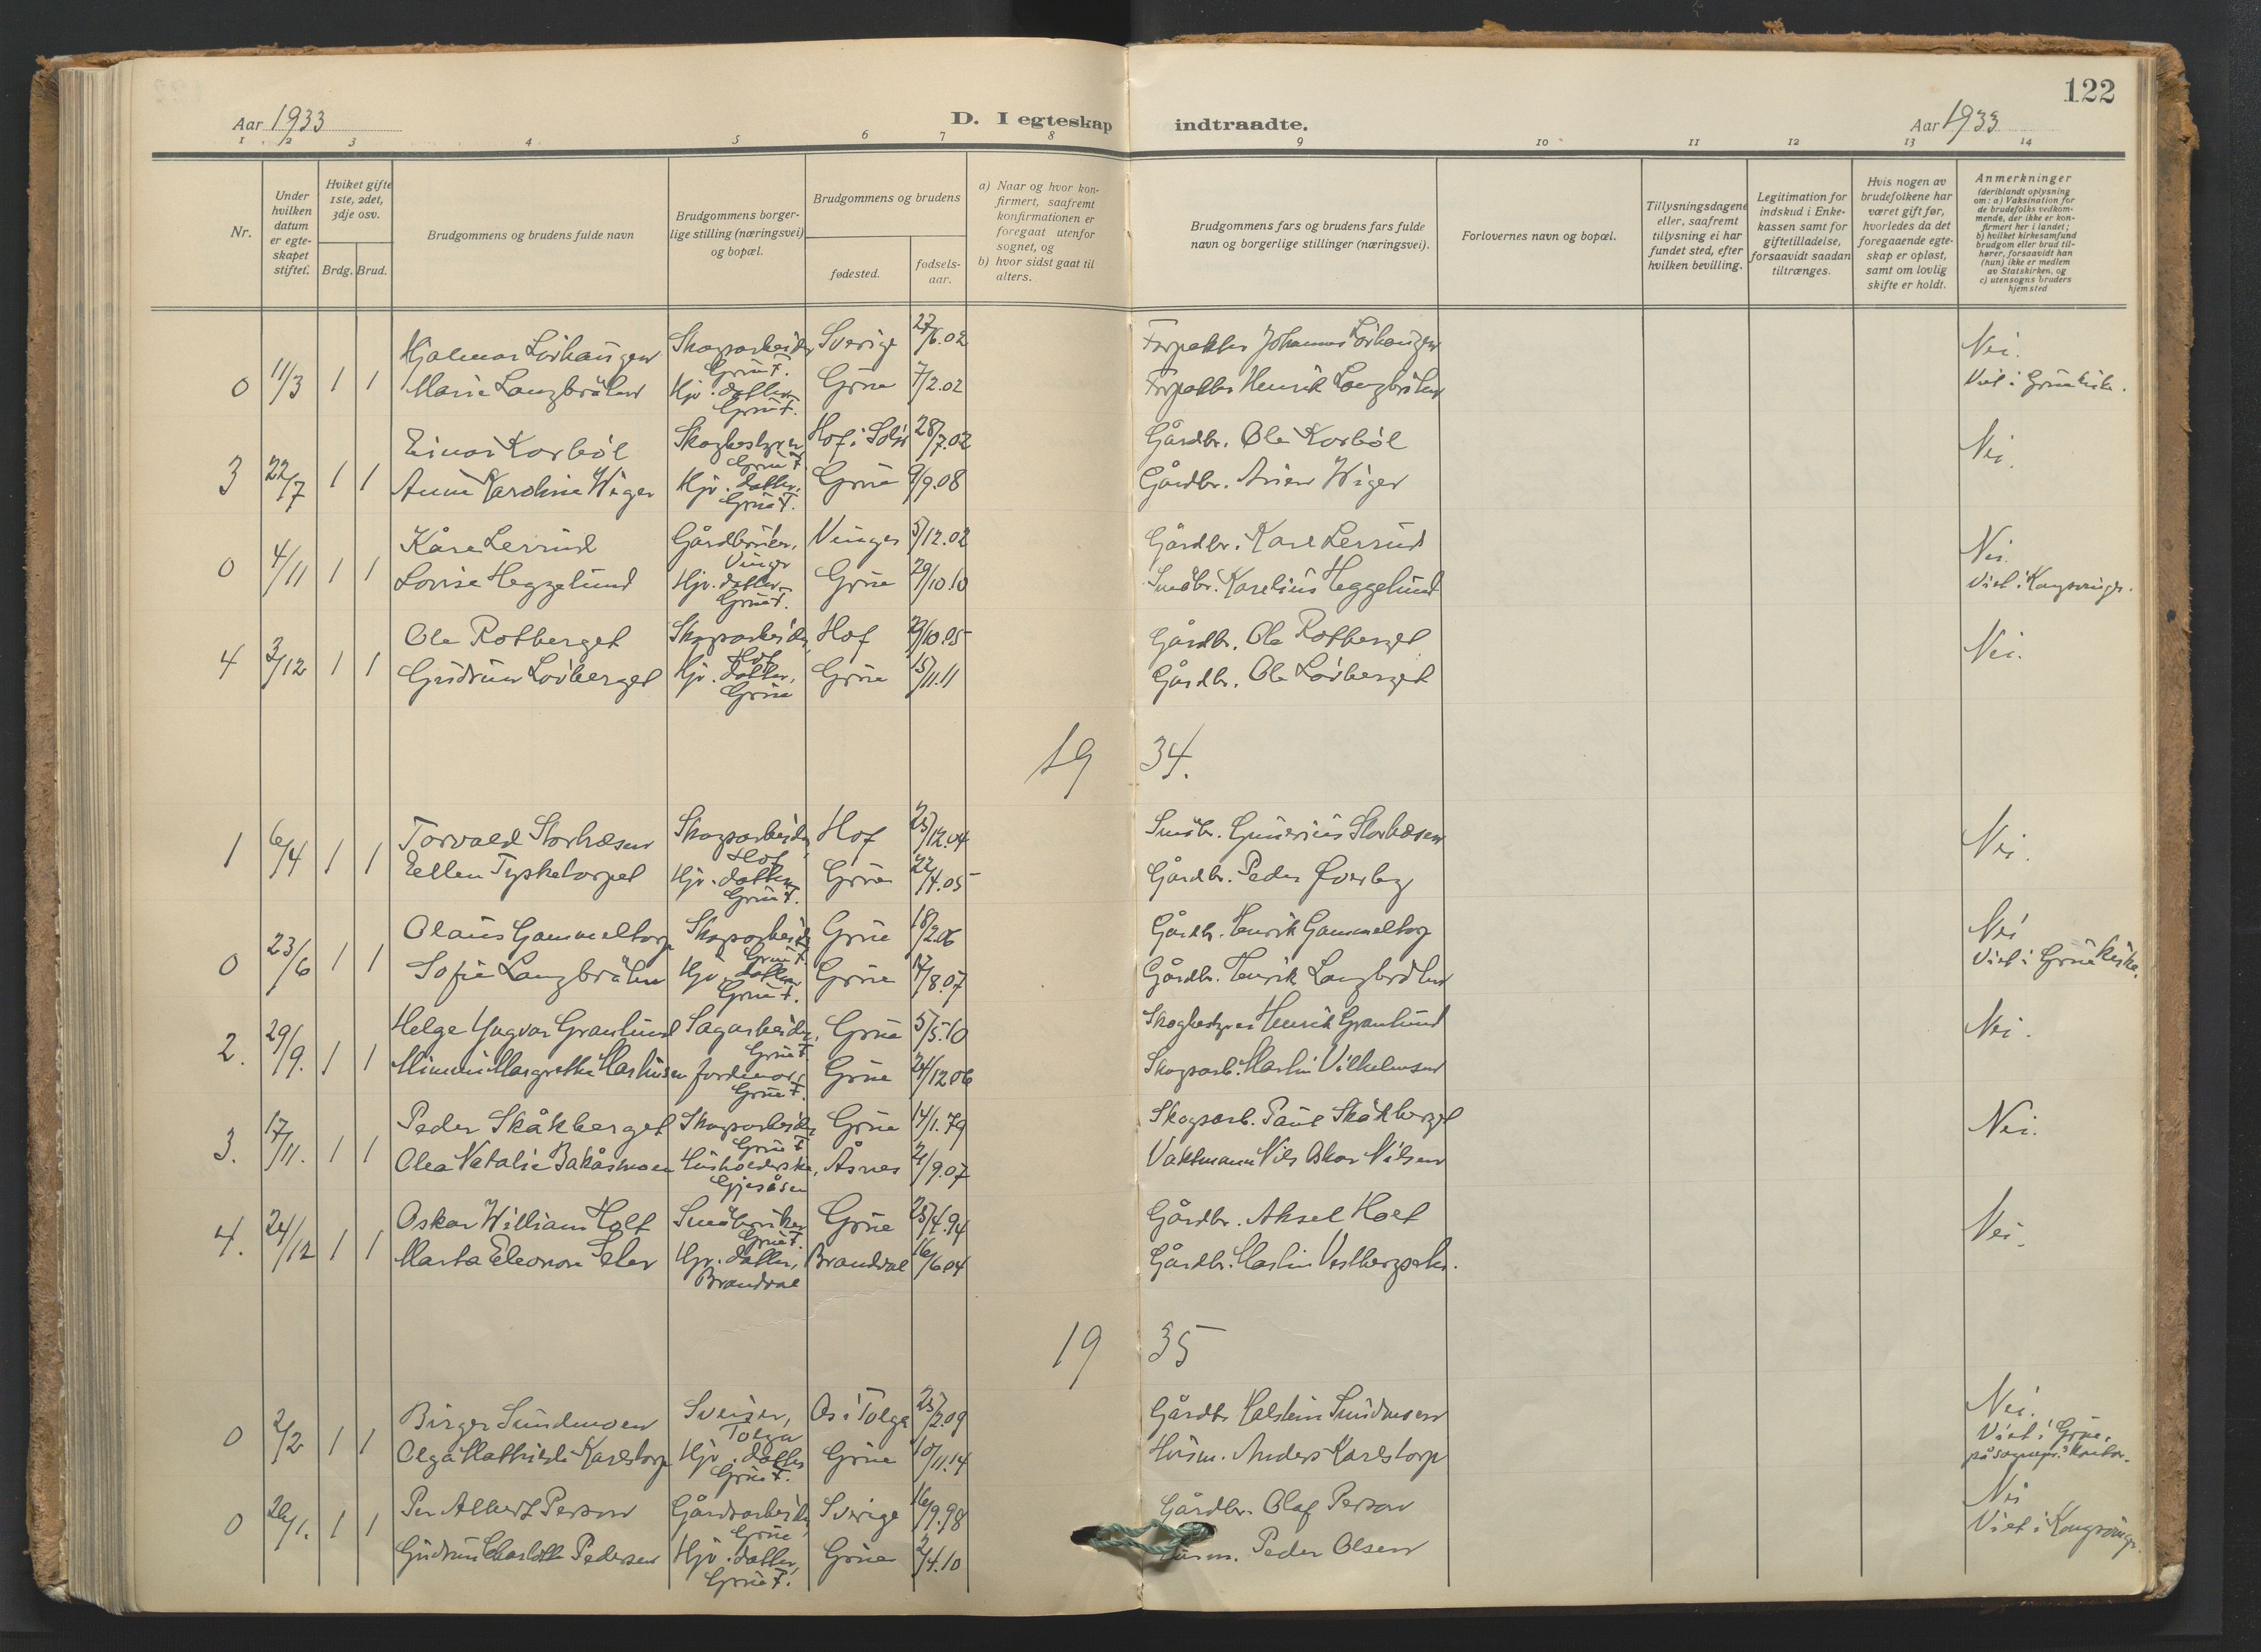 122
Aar 1933
D. I egteskap indtraadte.
Aar 1933
1 2 3 4 5 6 7 8 9 10 11 12 13 14
Nr.
Under hvilken datum er egteskapet stiftet.
Hviket gifte 1ste, 2det, 3dje osv.
Brdg. Brud.
Brudgommens og brudens fulde navn
Brudgommens borgerlige stilling (næringsvei) og bopæl.
Brudgommens og brudens
fødested.
fødselsaar.
a) Naar og hvor konfirmert, saafremt konfirmationen er foregaat utenfor sognet, og
b) hvor sidst gaat til alters.
Brudgommens fars og brudens fars fulde navn og borgerlige stillinger (næringsvei).
Forlovernes navn og bopæl.
Tillysningsdagene eller, saafremt tillysning ei har fundet sted, efter hvilken bevilling.
Legitimation for indskud i Enkekassen samt for giftetilladelse, forsaavidt saadan tiltrænges.
Hvis nogen av brudefolkene har været gift før, hvorledes da det foregaaende egteskap er opløst, samt om lovlig skifte er holdt.
Anmerkninger
(deriblandt oplysning om: a) Vaksination for de brudefolks vedkommende, der ikke er konfirmert her i landet; b) hvilket kirkesamfund brudgom eller brud tilhører, forsaavidt han (hun) ikke er medlem av Statskirken, og c) utensogns bruders hjemsted
Hjalmar Lövhaugen Skogsarbeider Grue F. Sverige 27/6.02 Forpakter Johannes Lövhaugen Nei.
0 11/3 1 1 Marie Langbråten Hjv. datter, Grue F. Grue 7/2.02 Forpakter Henrik Langbråten Viet i Grue kirke.
Einar Korböl Skogbestyrer Grue F. Hof i Solör 28/7.02 Gårdbr. Ole Korböl Nei.
3 22/7 1 1 Anne Karoline Wiger Hjv. datter, Grue F. Grue 9/9.08 Gårdbr. Wiger
Kåre Lerrud Gårdbruker, Vinger Vinger 5/12.02 Gårdbr. Karl Lerrud Nei.
0 4/11 1 1 Lovise Heggelund Hjv. datter, Grue F. Grue 29/10.10 Småbr. Karelius Heggelund Viet i Kongsvinger.
Ole Rotberget Skogsarbeider, Hof Hof 29/10.05 Gårdbr. Ole Rotberget Nei.
4 3/12 1 1 Gudrun Lövberget Hjv. datter, Grue Grue 15/11.11 Gårdbr. Ole Lövberget
19 34.
Torvald Storhåsen Skogsarbeider, Hof Hof 25/12.04 Småbr. Gunerius Storhåsen Nei.
1 6/4 1 1 Eellen Tysketorpet Hjv. datter, Grue F. Grue 22/4.05 Gårdbr. Peder Øverby
Olaus Gammeltorp Skogsarbeider Grue F. Grue 18/2.06 Gårdb. Henrik Gammeltorp Nei
0 23/6 1 1 Sofie Langbråten Hjv. datter Grue F. Grue 17/8.07 Gårdbr. Henrik Langbråten Viet i Grue kirke.
Helge Yngvar Granlund Sagarbeider, Grue F. Grue 5/5.10 Skogbestyrer Henrik Granlund Nei.
2. 29/9. 1 1 Minni Margrethe Martinsen jordmor, Grue F. Grue 24/12.06 Skogsarb. Martin Vilhelmsen
Peder Skåkberget Skogsarbeider Grue F. Grue 14/1.79 Skogsarb. Paul Skåkberget Nei.
3. 17/11. 1 1 Olea Natalie Bakåsmoen Husholderske, Gjesåsen Åsnes 21/9.07 Vaktmann Nils Oskar Nilsen
Oskar William Holt Småbruker Grue F. Grue 25/4.94 Gårdbr. Aksel Holt Nei.
4. 24/12 1 1 Marta Eleonore Hjv. datter, Brandval Brandval 16/6.04 Gårdbr. Martin
19 35
Birger Sundmoen Sveiser, Tolga Os i Tolga 25/2.09 Gårdbr. Halstein Sundmoen Nei.
0 2/2 1 1 Olga Mathilde Karlstorp Hjv. datter Grue F. Grue 10/11.14 Husm. Anders Karlstorp Viet i Grue, på sognepr.s kontor.
Per Albert Person Gårdsarbeider Grue, Sverige 16/9.98 Gårdbr. Olaf Person Nei
0 26/1. 1 1 Gudrun Charlotte Pedersen Hjv. datter, Grue F. Grue 2/4.10 Husm. Peder Olsen Viet i Kongsvinger.